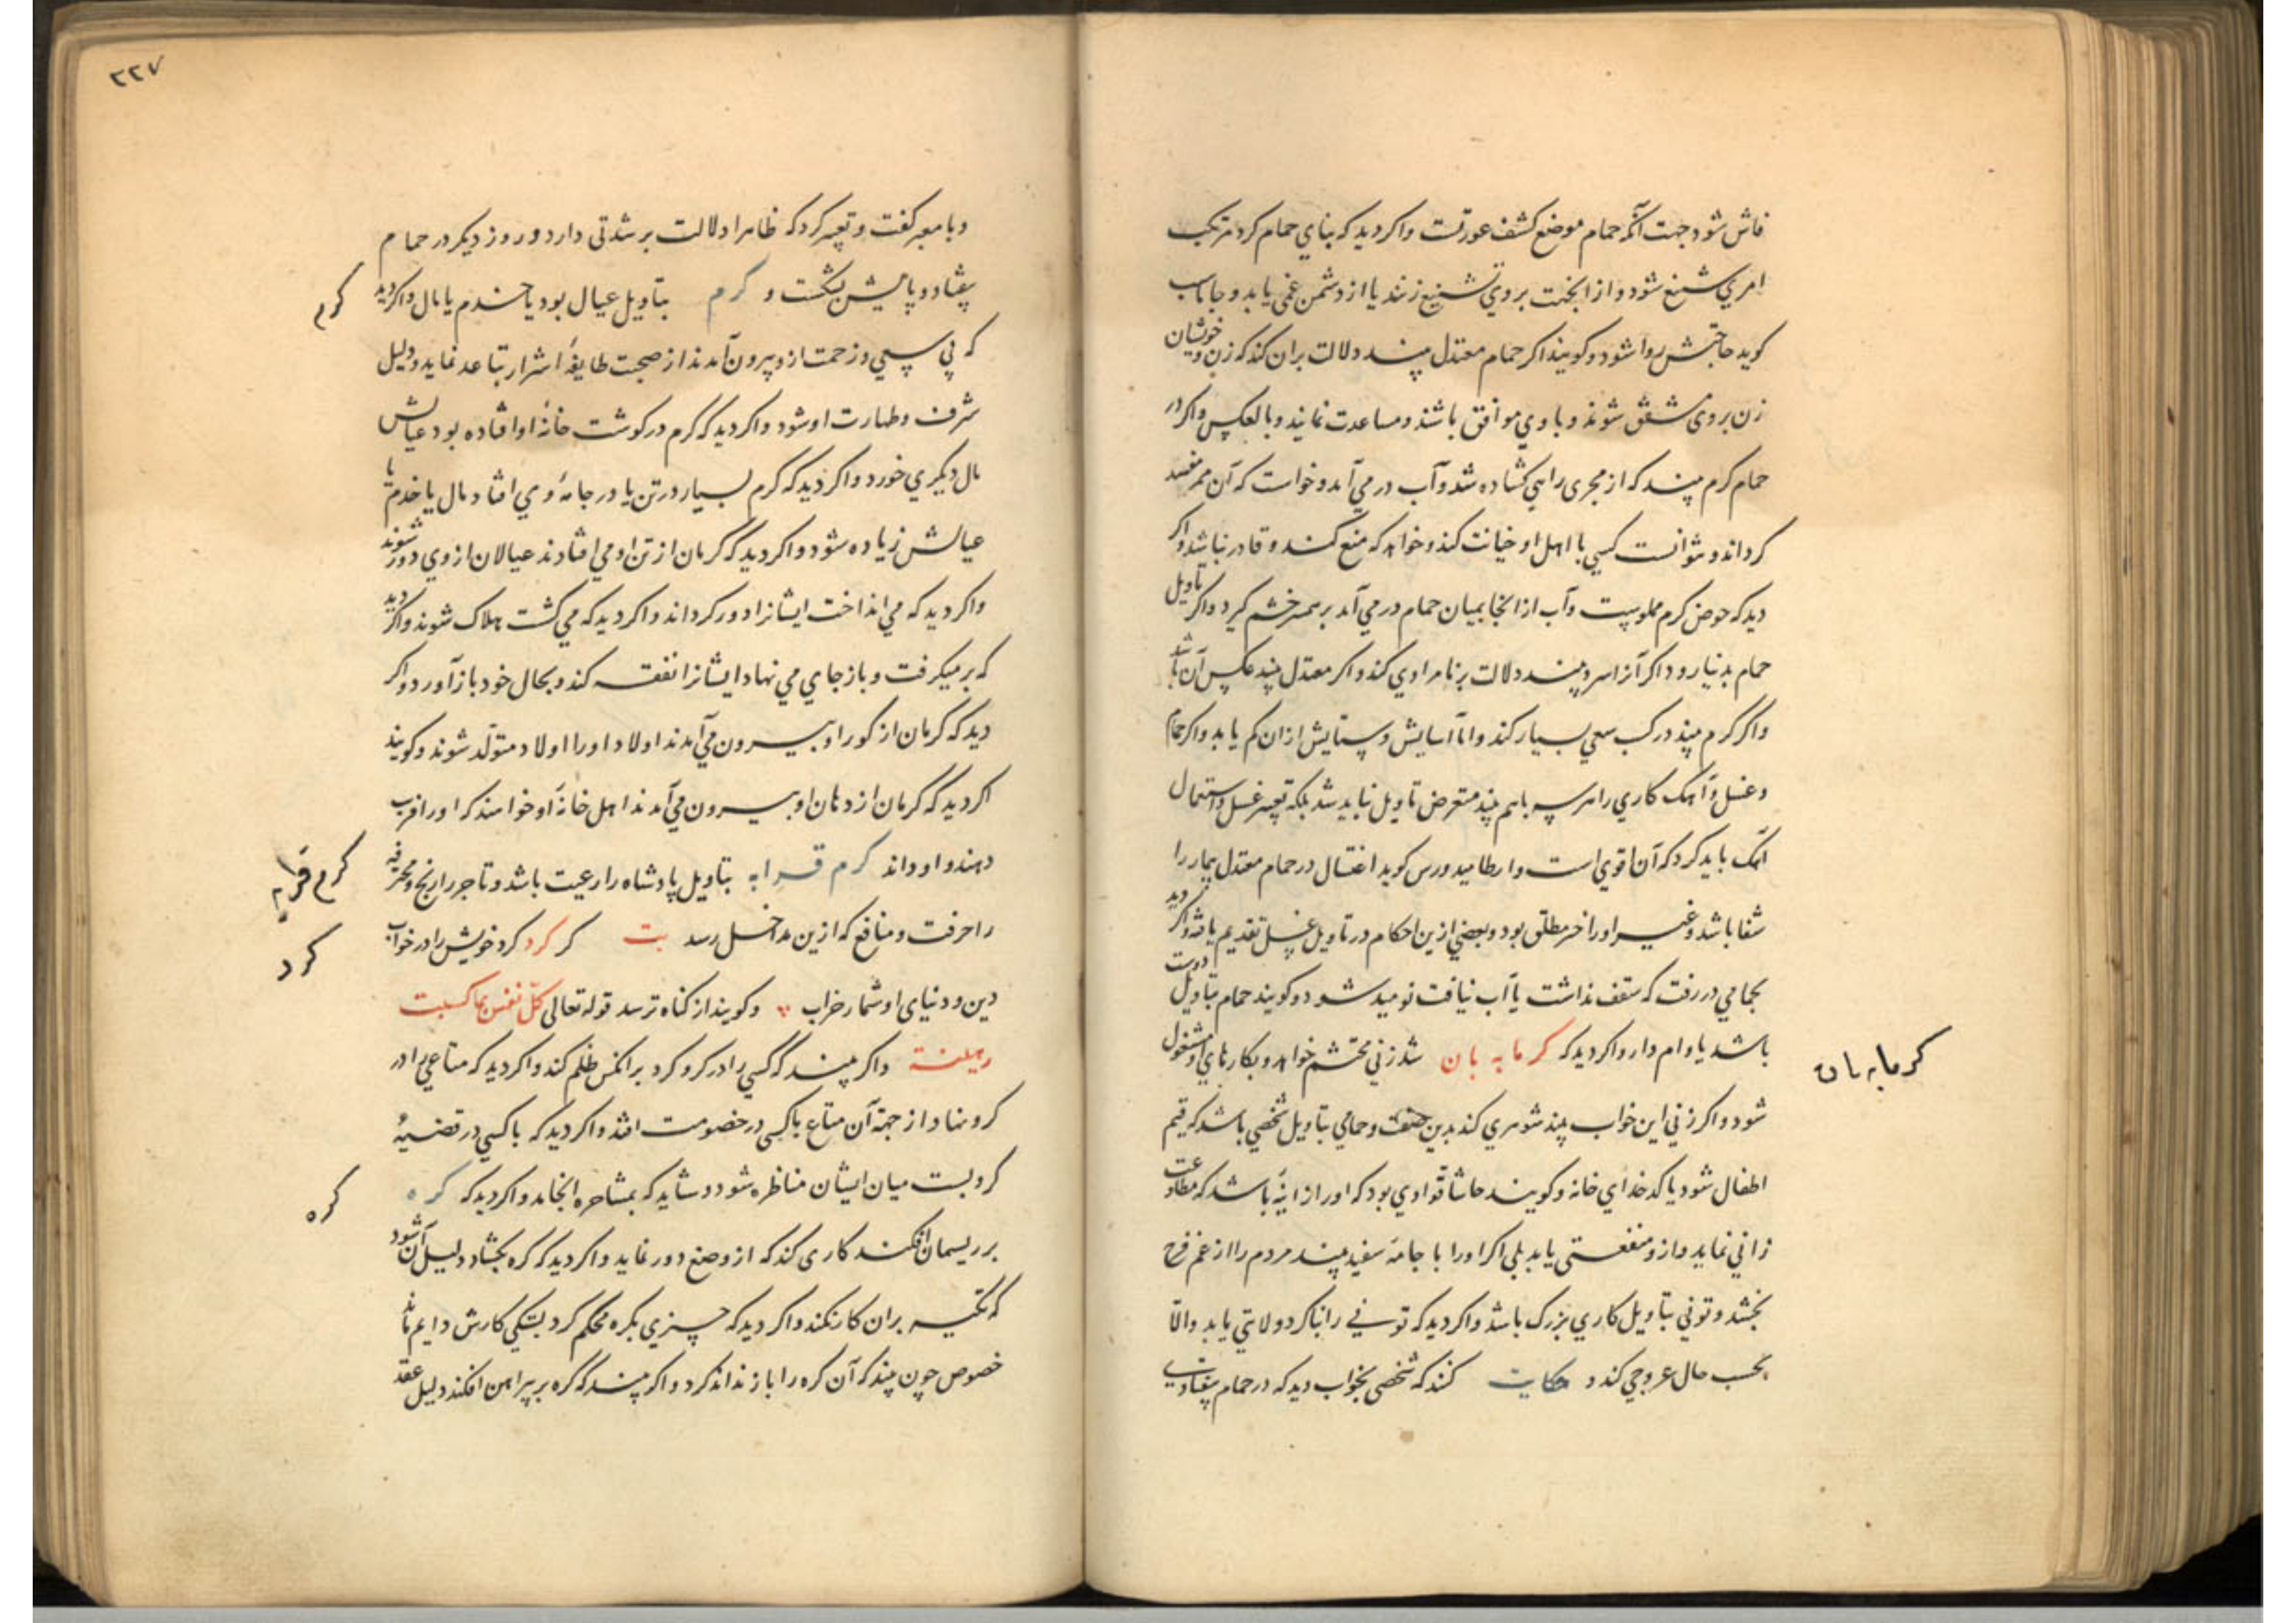 فاش شود جهت آنکه حمام موضع کشف عورتست واکر دید که بنای حمام کرد مرتکب
امری شنیع شود و از انجهت بر وی تشنیع زنند یا از دشمن غمی یابد و جاماسب
کوید حاجتش روا شود و کویند اکر حمام معتدل بیند دلالت بران کند که زن و خویشان
زن بر وی مشفق شوند و با وی موافق باشند و مساعدت نمایند و بالعکس واکر در
حمام کرم بیند که از مجری راهی کشاده شد و آب در می آمد و خواست که آن ممر
کرداند و نتوانست کسی با اهل او خیانت کند و خواهد که منع کند و قادر نباشد واکر
دید که حوض کرم مملوست و آب از انجا بمیان حمام در می آمد بر همسر خشم کیرد واکر تاویل
حمام بدنیا رود اکر آنرا سرد بیند دلالت بر نامرادی کند واکر معتدل بیند عکس آن باشد
واکر کرم بیند در کسب سعی بسیار کند واما آسایش و ستایش ازان کم یابد واکر حمام
و غسل و آهک کاری را هر سه باهم بیند متعرض تاویل نباید شد بلکه تعبیر غسل و استعمال
آهک باید کرد که آن اقوی است وارطامیدورس کوید اغتسال در حمام معتدل بیمار را
شفا باشد و غیر او را خیر مطلق بود و بعضی ازین احکام در تاویل غسل تقدیم یافته واکر دید
بحمامی در رفت که سقف نداشت یا آب نیافت نومید شود و کویند حمام بتاویل دوست
باشد یا وام دار واکر دید که کرمابه بان شد زنی محتشم خواهد و بکارهای او مشغول
کرمابه بان
شود واکر زنی این خواب بیند شوهری کند بدین صفت و حمامی بتاویل شخصی باشد که قیم
اطفال شود یا کدخدای خانه و کویند حاشا قوادی بود که او را زانیه باشد که مطاوعت
زانی نماید و ازو منفعتی یابد بلی اکر او را با جامهٔ سفید بیند مردم را از غم فرح
بخشد و تونی بتاویل کاری بزرک باشد واکر دید که تونی را بنا کرد ولایتی یابد والا
بحسب حال عروجی کند و حکایت کنند که شخصی بخواب دید که در حمام بیفتادی
٢٢٧
و با معبر کفت و تعبیر کرد که ظاهرا دلالت بر شدتی دارد و روز دیکر در حمام
بیفتاد و پایش بشکست و کرم بتاویل عیال بود یا خدم یا مال واکر دید
کرم
که بی سببی و زحمت ازو بیرون آمدند از صحبت طایفهٔ اشرار تباعد نماید و دلیل
شرف و طهارت او شود واکر دید که کرم در کوشت خانهٔ او افتاده بود عیالش
مال دیکری خورد واکر دید که کرم بسیار در تن یا در جامهٔ وی افتاد مال یا خدم یا
عیالش زیاده شود واکر دید که کرمان از تن او می افتادند عیالان از وی دور شوند
واکر دید که می انداخت ایشانرا دور کرداند واکر دید که می کشت هلاک شوند واکر دید
که بر میکرفت و باز جای می نهاد ایشانرا نفقه کند و بحال خود باز آورد واکر
دید که کرمان از کور او بیرون می آمدند اولاد او را اولاد متولد شوند و کویند
اکر دید که کرمان از دهان او بیرون می آمدند اهل خانهٔ او خواهند که او را فریب
دهند و او داند کرم قرابه بتاویل پادشاه را رعیت باشد و تاجر را رنج و محترفه
کرم قرابه
را حرفت و منافع که ازین مداخل رسد بیت کر کرد کرد خویش را در خواب
کرد
دین و دنیای او شمار خراب و کویند از کناه ترسد قوله تعالی کل نفس بما کسبت
رهینة واکر بیند که کسی را در کرو کرد بر انکس ظلم کند واکر دید که متاعی را در
کرو نهاد از جهة آن متاع با کسی در خصومت افتد واکر دید که با کسی در قضیهٔ
کرو بست میان ایشان مناظره شود و شاید که بمشاجره انجامد واکر دید که کره
کره
بر ریسمان افکند کاری کند که ازو ضع دور نماید واکر دید که کره بکشاد دلیل آن شود
که تکیه بران کار نکند واکر دید که چیزی بکره محکم کرد بستکی کارش دایم ماند
خصوص چون بیند که آن کره را باز نداند کرد واکر بیند که کره بر پیراهن افکند دلیل عقد